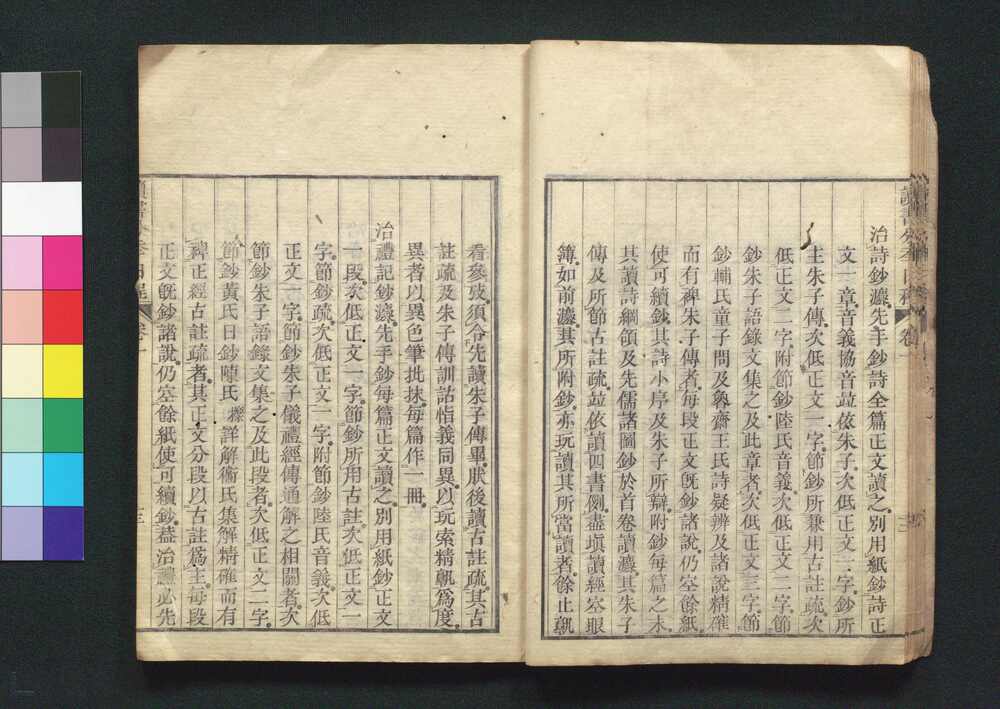 治詩鈔灋。先手鈔詩全篇正文讀之。別用紙鈔詩正
文一章。音義協音竝依朱子。次低正文一字。鈔所
主朱子傳。次低正文一字。節鈔所兼用古註疏。次
低正文二字。附節鈔陸氏音義。次低正文二字。節
鈔朱子語錄文集之及此章者。次低正文三字。節
鈔輔氏童子問及魯齋王氏詩疑辨及諸說精確
而有裨朱子傳者。每段正文旣鈔諸說。仍空餘紙。
使可續鈔。其詩小序及朱子所辯。附鈔每篇之末
其讀詩綱領及先儒諸圖。鈔於首卷。讀灋其朱子
傳及所節古註疏。竝依讀四書例。盡塡讀經空眼
簿。如前灋。其所附鈔。亦玩讀其所當讀者。餘止孰
看參攷。須令先讀朱子傳畢。肰後讀古註疏。其古
註疏及朱子傳訓詁恉義同異。以玩索精孰爲度。
異者以異色筆批抹。每篇作一冊。
治禮記鈔灋。先手鈔每篇正文讀之。別用紙鈔正文
一段。次低正文一字。節鈔所用古註。次低正文一
字。節鈔疏。次低正文一字。附節鈔陸氏音義。次低
正文一字。節鈔朱子儀禮經傳通解之相關者。次
節鈔朱子語錄文集之及此段者。次低正文二字。
節鈔黃氏日鈔陳氏櫟詳解衞氏集解精確而有
裨正經古註疏者。其正文分段以古註爲主。每段
正文旣鈔諸說。仍空餘紙。使可續鈔。葢治禮必先